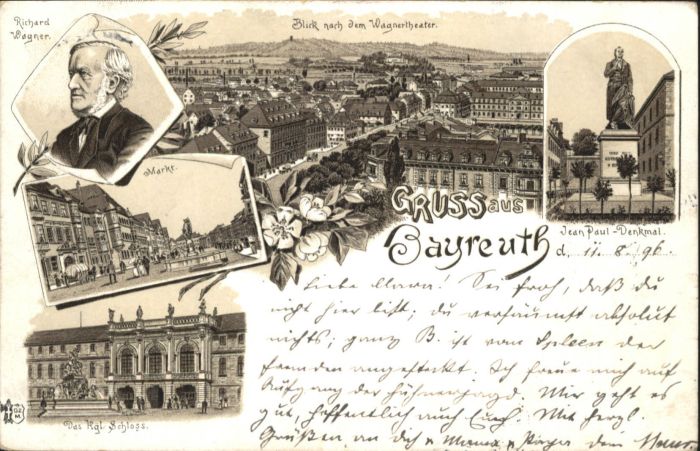 Richard
Wagner.
Blick nach dem Wagnertheater.
Markt.
GRUSS aus
Bayreuth
Jean Paul-Denkmal.
d. 11. 8. 96.
Liebe Mama! Sei froh, daß du
nicht hier bist; du versäumst absolut
nichts; ganz B. ist vom Spleen der
Fremden angesteckt. Ich freue mich auf
der Hühnerjagd. Mir geht es
gut, hoffentlich auch Euch. Mit herzl.
Grüßen an dich u. dein
Das Kgl. Schloss.